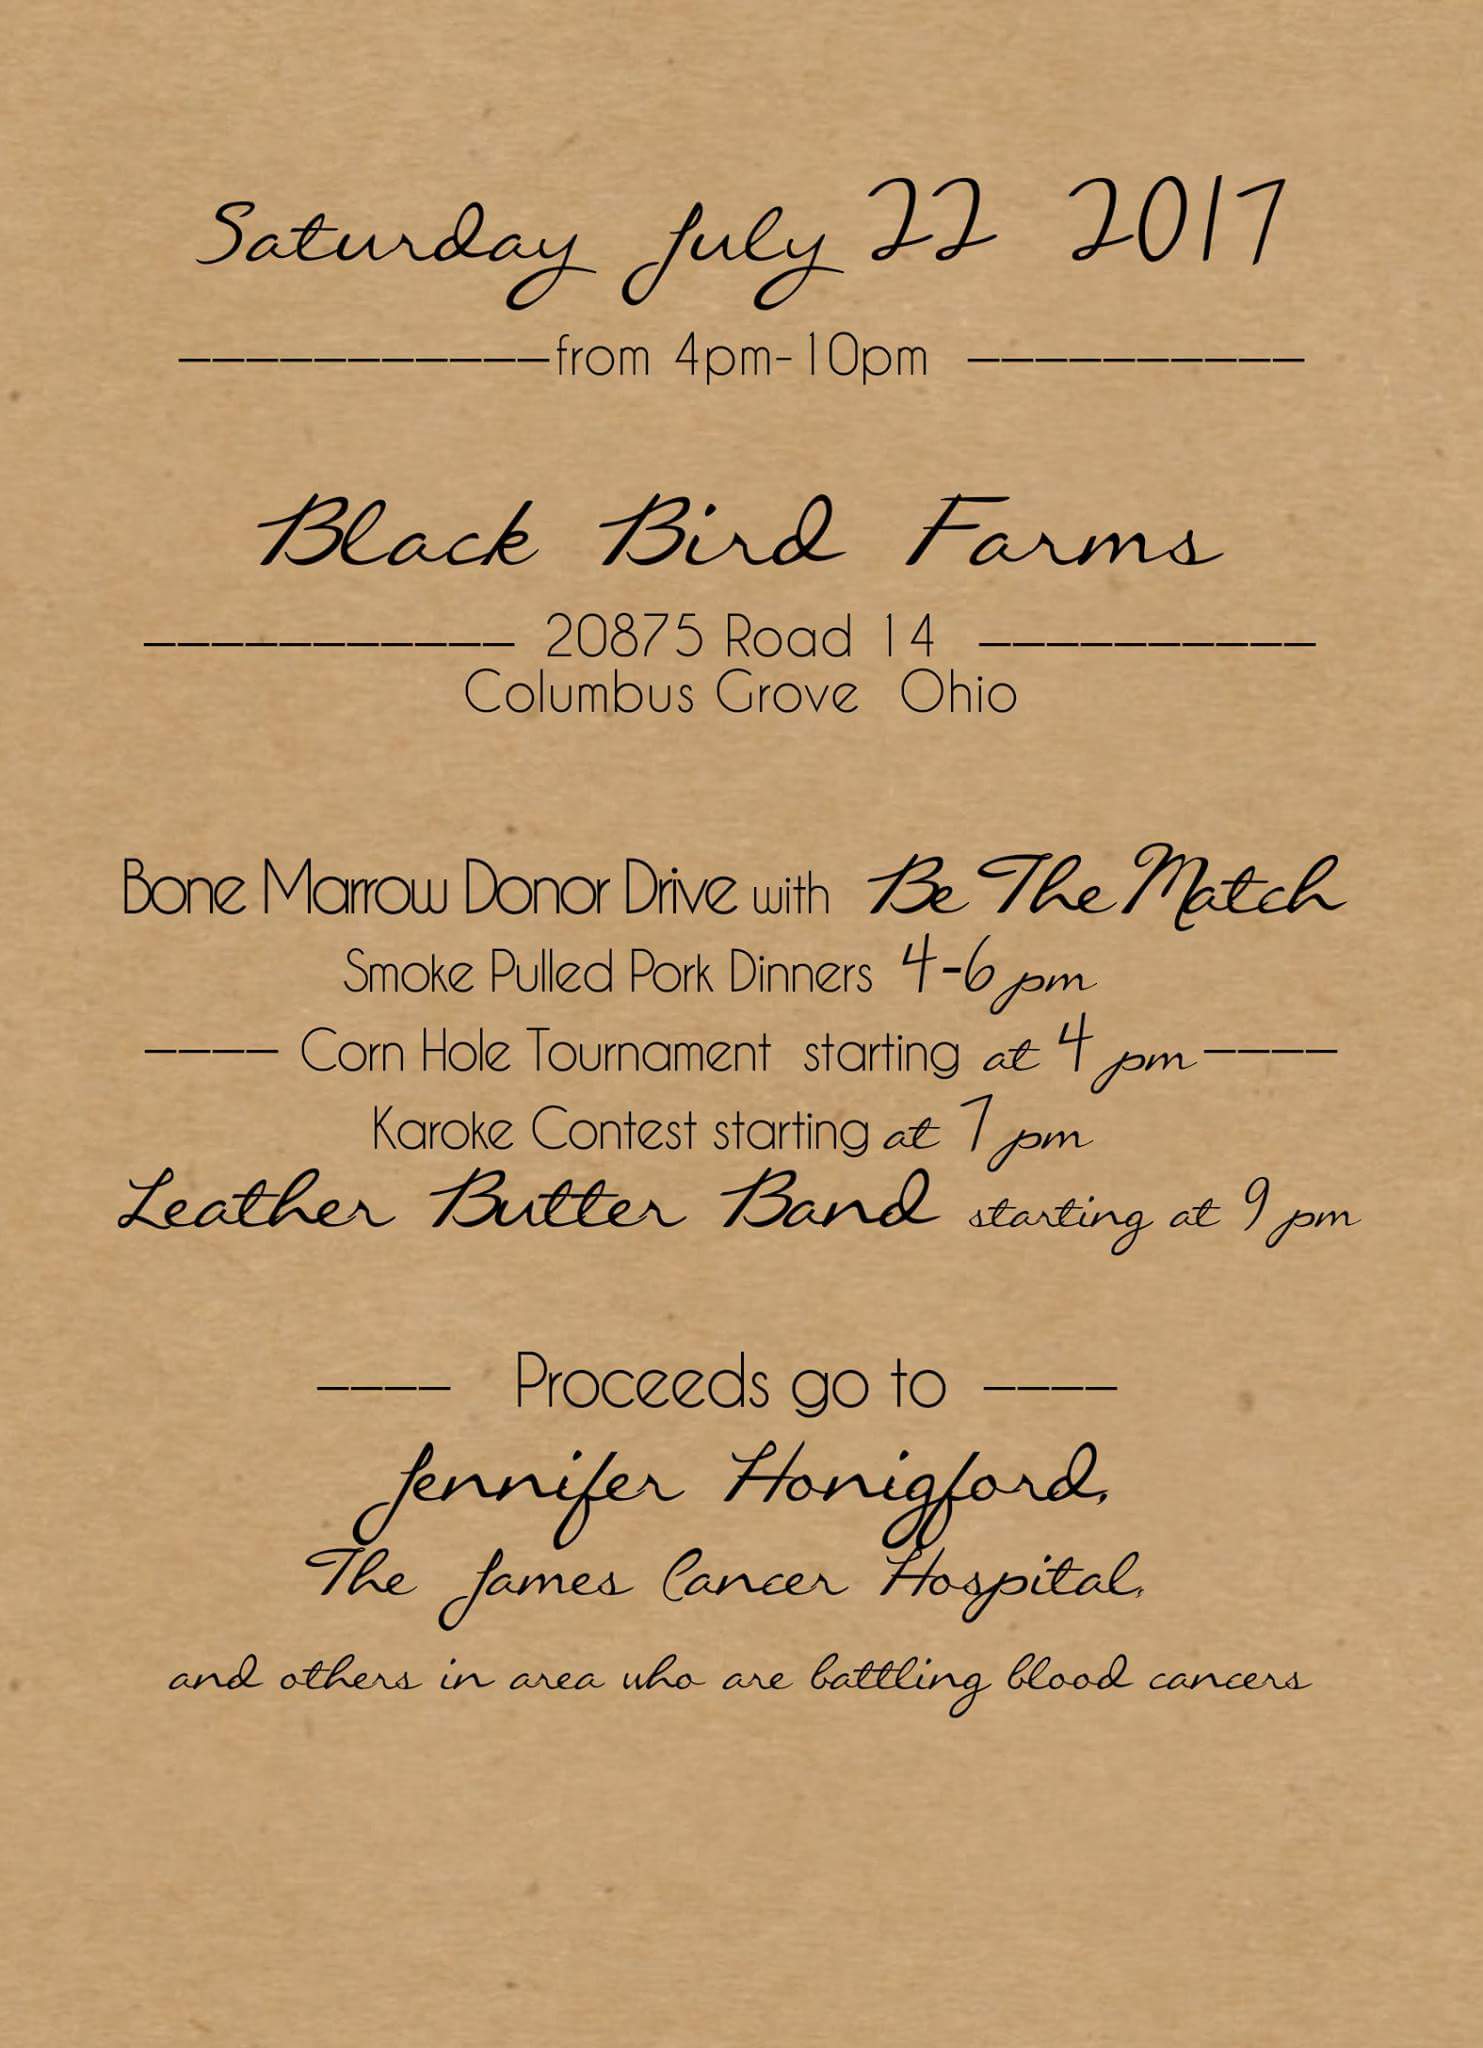 Saturday July 22 2017
-----------from 4pm-10pm ----------
Black Bird Farms
----------- 20875 Road 14 ----------
Columbus Grove Ohio
Bone Marrow Donor Drive with Be The Match
Smoke Pulled Pork Dinners 4-6 pm
---- Corn Hole Tournament starting at 4 pm ----
Karoke Contest starting at 7 pm
Leather Butter Band starting at 9 pm
---- Proceeds go to ----
Jennifer Honigford,
The James Cancer Hospital,
and others in area who are battling blood cancers